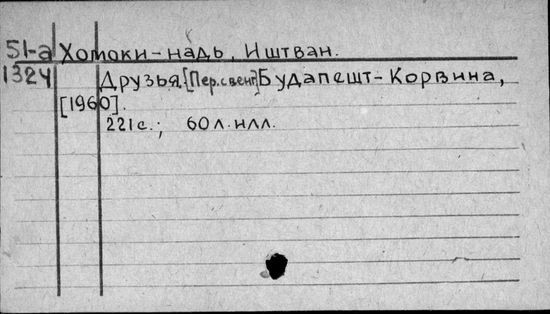 51-а Хомоки-надь, Иштван.
1324 Друзья. [Пер. с венг] Будапешт-Корвина,
[1960].
221 с.; 60 л. илл.